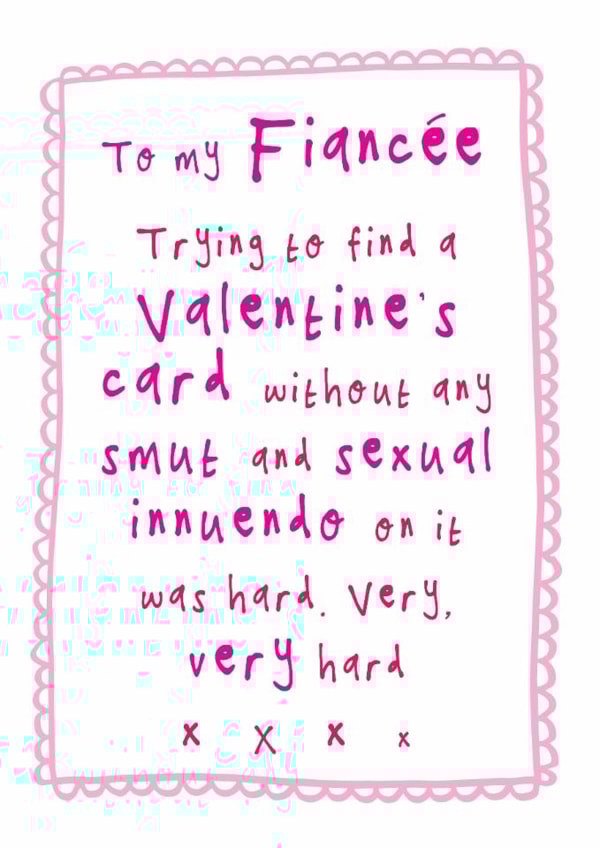 To my Fiancée
Trying to find a
Valentine's
card without any
smut and sexual
innuendo on it
was hard. Very,
very hard
x x x x